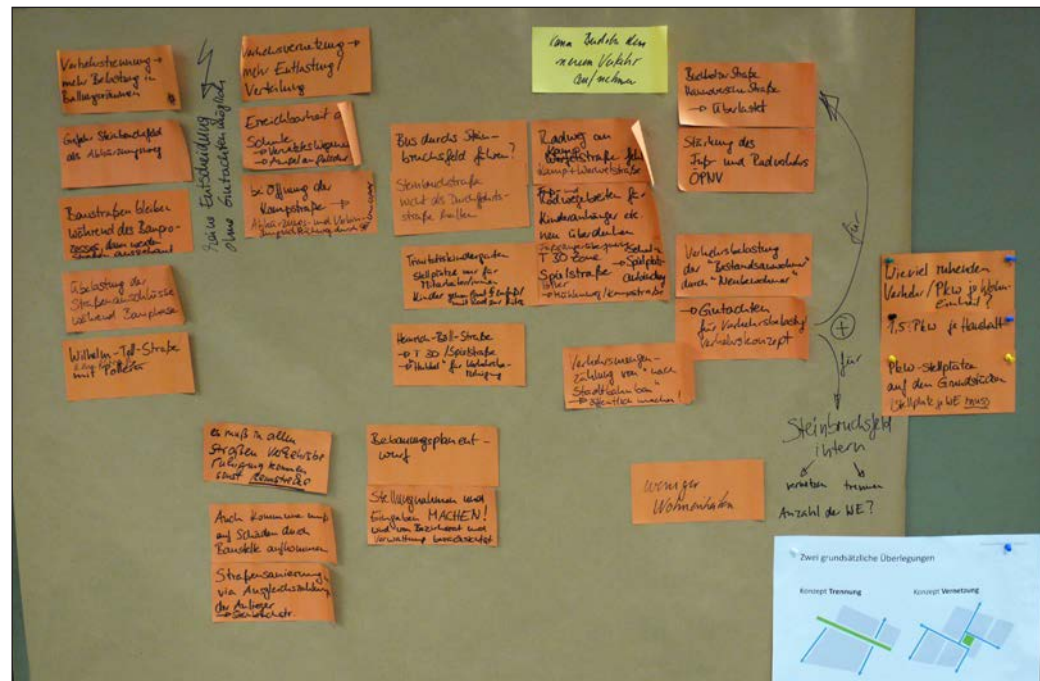 Verkehrstrennung →
mehr Belastung in
Ballungsräumen
Gefahr Steinbruchsfeld
als Abkürzungsweg
Baustraßen bleiben
während des Baupro-
zesses, dann werden
Straßen ausgebaut
Übelastung der
Straßenanschlüsse
während Bauphase
Wilhelm-Tell-Straße
mit Pollern
keine Entscheidung
ohne Gutachten möglich
Verkehrsvernetzung →
mehr Entlastung/
Verteilung
Erreichbarkeit d
Schule
→ Ampel an
bei Öffnung der
Kampstraße →
Bus durchs Stein-
bruchsfeld führen?
Steinbruchstraße
nicht als Durchfahrts-
straße
Trinitatiskindergarten
Stellplätze nur für
MitarbeiterInnen
Kinder
Heinrich-Böll-Straße
→ T 30 / Spielstraße
→ "Hubbel" für Verkehrsbe-
ruhigung
Kann Bucholz den
neuen Verkehr
aufnehmen
Radweg an
Kamp + Werfelstraße
Radwegebreiten für
Kinderanhänger etc.
neu überdenken
T 30 Zone
Spielstraße
→ Spielplatz
Bucholzer Straße
Hannoversche Straße
→ Überlastet
Stärkung des
Fuß- und Radverkehrs
ÖPNV
Verkehrsbelastung
der "Bestandsanwohner"
durch "Neubewohner"
→ Gutachten
für Verkehrsbelastg
Verkehrskonzept
Verkehrsmengen-
zählung von "nach
Stadtbahnbau"
→ öffentlich machen!
für
+
für
Steinbruchsfeld
intern
vernetzen trennen
Anzahl der WE?
Wieviel ruhenden
Verkehr/PKW je Wohn-
einheit?
1,5 PKW je Haushalt
PKW-Stellplätze
auf den Grundstücken
1 Stellplatz je WE muss
es muß in allen
Straßen Verkehrsbe
ruhigung kommen
sonst
Auch Kommune muß
auf Schäden durch
Baustelle aufkommen
Straßensanierung
via Ausgleichszahlung
der Anlieger
→ Steinbruchstr.
Bebauungsplanent-
wurf
Stellungnahmen und
Eingaben MACHEN!
und von Bezirksrat und
Verwaltung berücksichtigt
weniger
Wohneinheiten
Zwei grundsätzliche Überlegungen
Konzept Trennung
Konzept Vernetzung